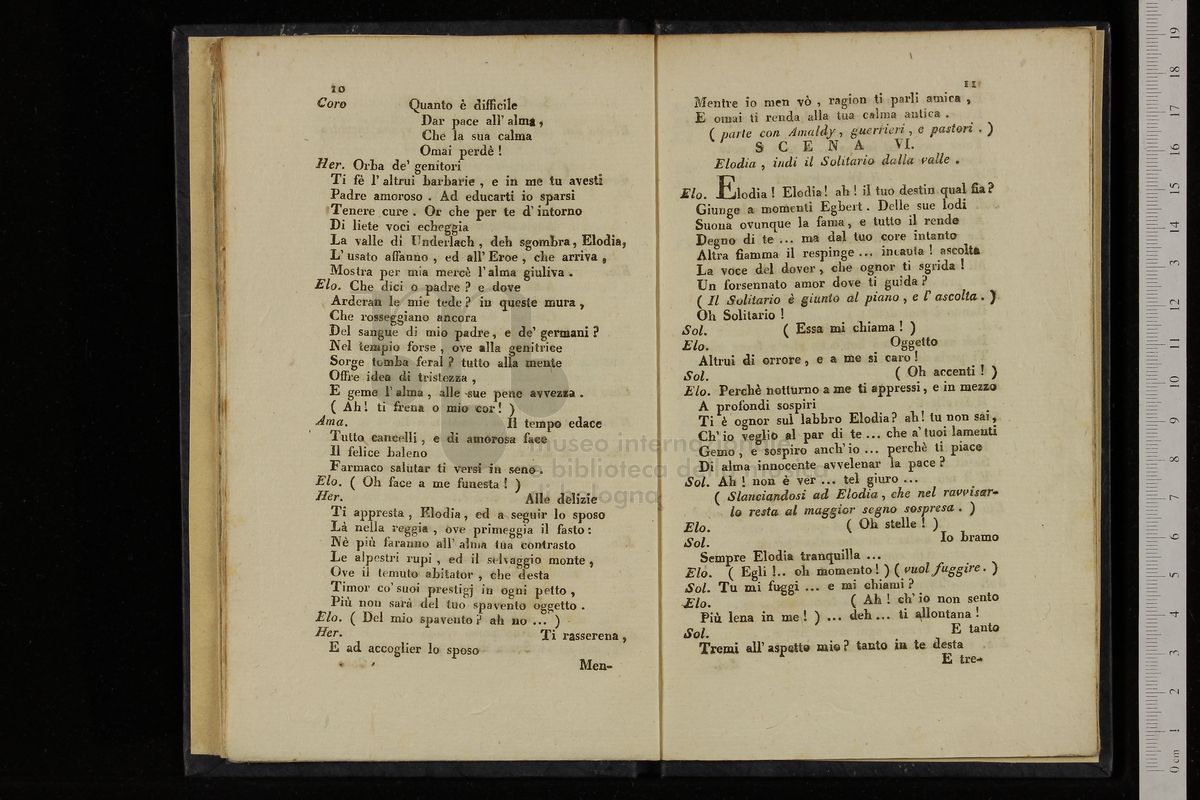 10
Coro Quanto è difficile
Dar pace all' alma,
Che la sua calma
Omai perdè !
Her. Orba de' genitori
Ti fè l' altrui barbarie , e in me tu avesti
Padre amoroso . Ad educarti io sparsi
Tenere cure . Or che per te d' intorno
Di liete voci echeggia
La valle di Underlach , deh sgombra, Elodia,
L' usato affanno , ed all' Eroe , che arriva ,
Mostra per mia mercè l' alma giuliva .
Elo. Che dici o padre ? e dove
Arderan le mie tede ? in queste mura ,
Che rosseggiano ancora
Del sangue di mio padre, e de' germani ?
Nel tempio forse , ove alla genitrice
Sorge tomba feral ? tutto alla mente
Offre idea di tristezza ,
E geme l' alma , alle sue pene avvezza .
( Ah! ti frena o mio cor! )
Ama. Il tempo edace
Tutto cancelli , e di amorosa face
Il felice baleno
Farmaco salutar ti versi in seno .
Elo. ( Oh face a me funesta ! )
Her. Alle delizie
Ti appresta , Elodia , ed a seguir lo sposo
Là nella reggia , ove primeggia il fasto :
Nè più faranno all' alma tua contrasto
Le alpestri rupi , ed il selvaggio monte ,
Ove il temuto abitator , che desta
Timor co' suoi prestigj in ogni petto ,
Più non sarà del tuo spavento oggetto .
Elo. ( Del mio spavento ? ah no ... )
Her. Ti rasserena ,
E ad accoglier lo sposo
Men-
11
Mentre io men vò , ragion ti parli amica ,
E omai ti renda alla tua calma antica .
( parte con Amaldy , guerrieri , e pastori . )
SCENA VI.
Elodia , indi il Solitario dalla valle .
Elo. Elodia ! Elodia! ah ! il tuo destin qual fia ?
Giunge a momenti Egbert . Delle sue lodi
Suona ovunque la fama , e tutto il rende
Degno di te ... ma dal tuo core intanto
Altra fiamma il respinge ... incauta ! ascolta
La voce del dover , che ognor ti sgrida !
Un forsennato amor dove ti guida ?
( Il Solitario è giunto al piano , e l' ascolta . )
Oh Solitario !
Sol. ( Essa mi chiama ! )
Elo. Oggetto
Altrui di orrore , e a me si caro !
Sol. ( Oh accenti ! )
Elo. Perchè notturno a me ti appressi , e in mezzo
A profondi sospiri
Ti è ognor sul labbro Elodia? ah! tu non sai,
Ch' io veglio al par di te ... che a' tuoi lamenti
Gemo , e sospiro anch' io ... perchè ti piace
Di alma innocente avvelenar la pace ?
Sol. Ah ! non è ver ... tel giuro ...
( Slanciandosi ad Elodia , che nel ravvisar-
lo resta al maggior segno sospresa . )
Elo. ( Oh stelle ! )
Sol. Io bramo
Sempre Elodia tranquilla ...
Elo. ( Egli !.. oh momento ! ) ( vuol fuggire . )
Sol. Tu mi fuggi ... e mi chiami ?
Elo. ( Ah ! ch' io non sento
Più lena in me ! ) ... deh ... ti allontana !
Sol. E tanto
Tremi all' aspetto mio ? tanto in te desta
E tre-
museo internazionale
e biblioteca della musica
di bologna
0 cm 1 2 3 4 5 6 7 8 9 10 11 12 13 14 15 16 17 18 19